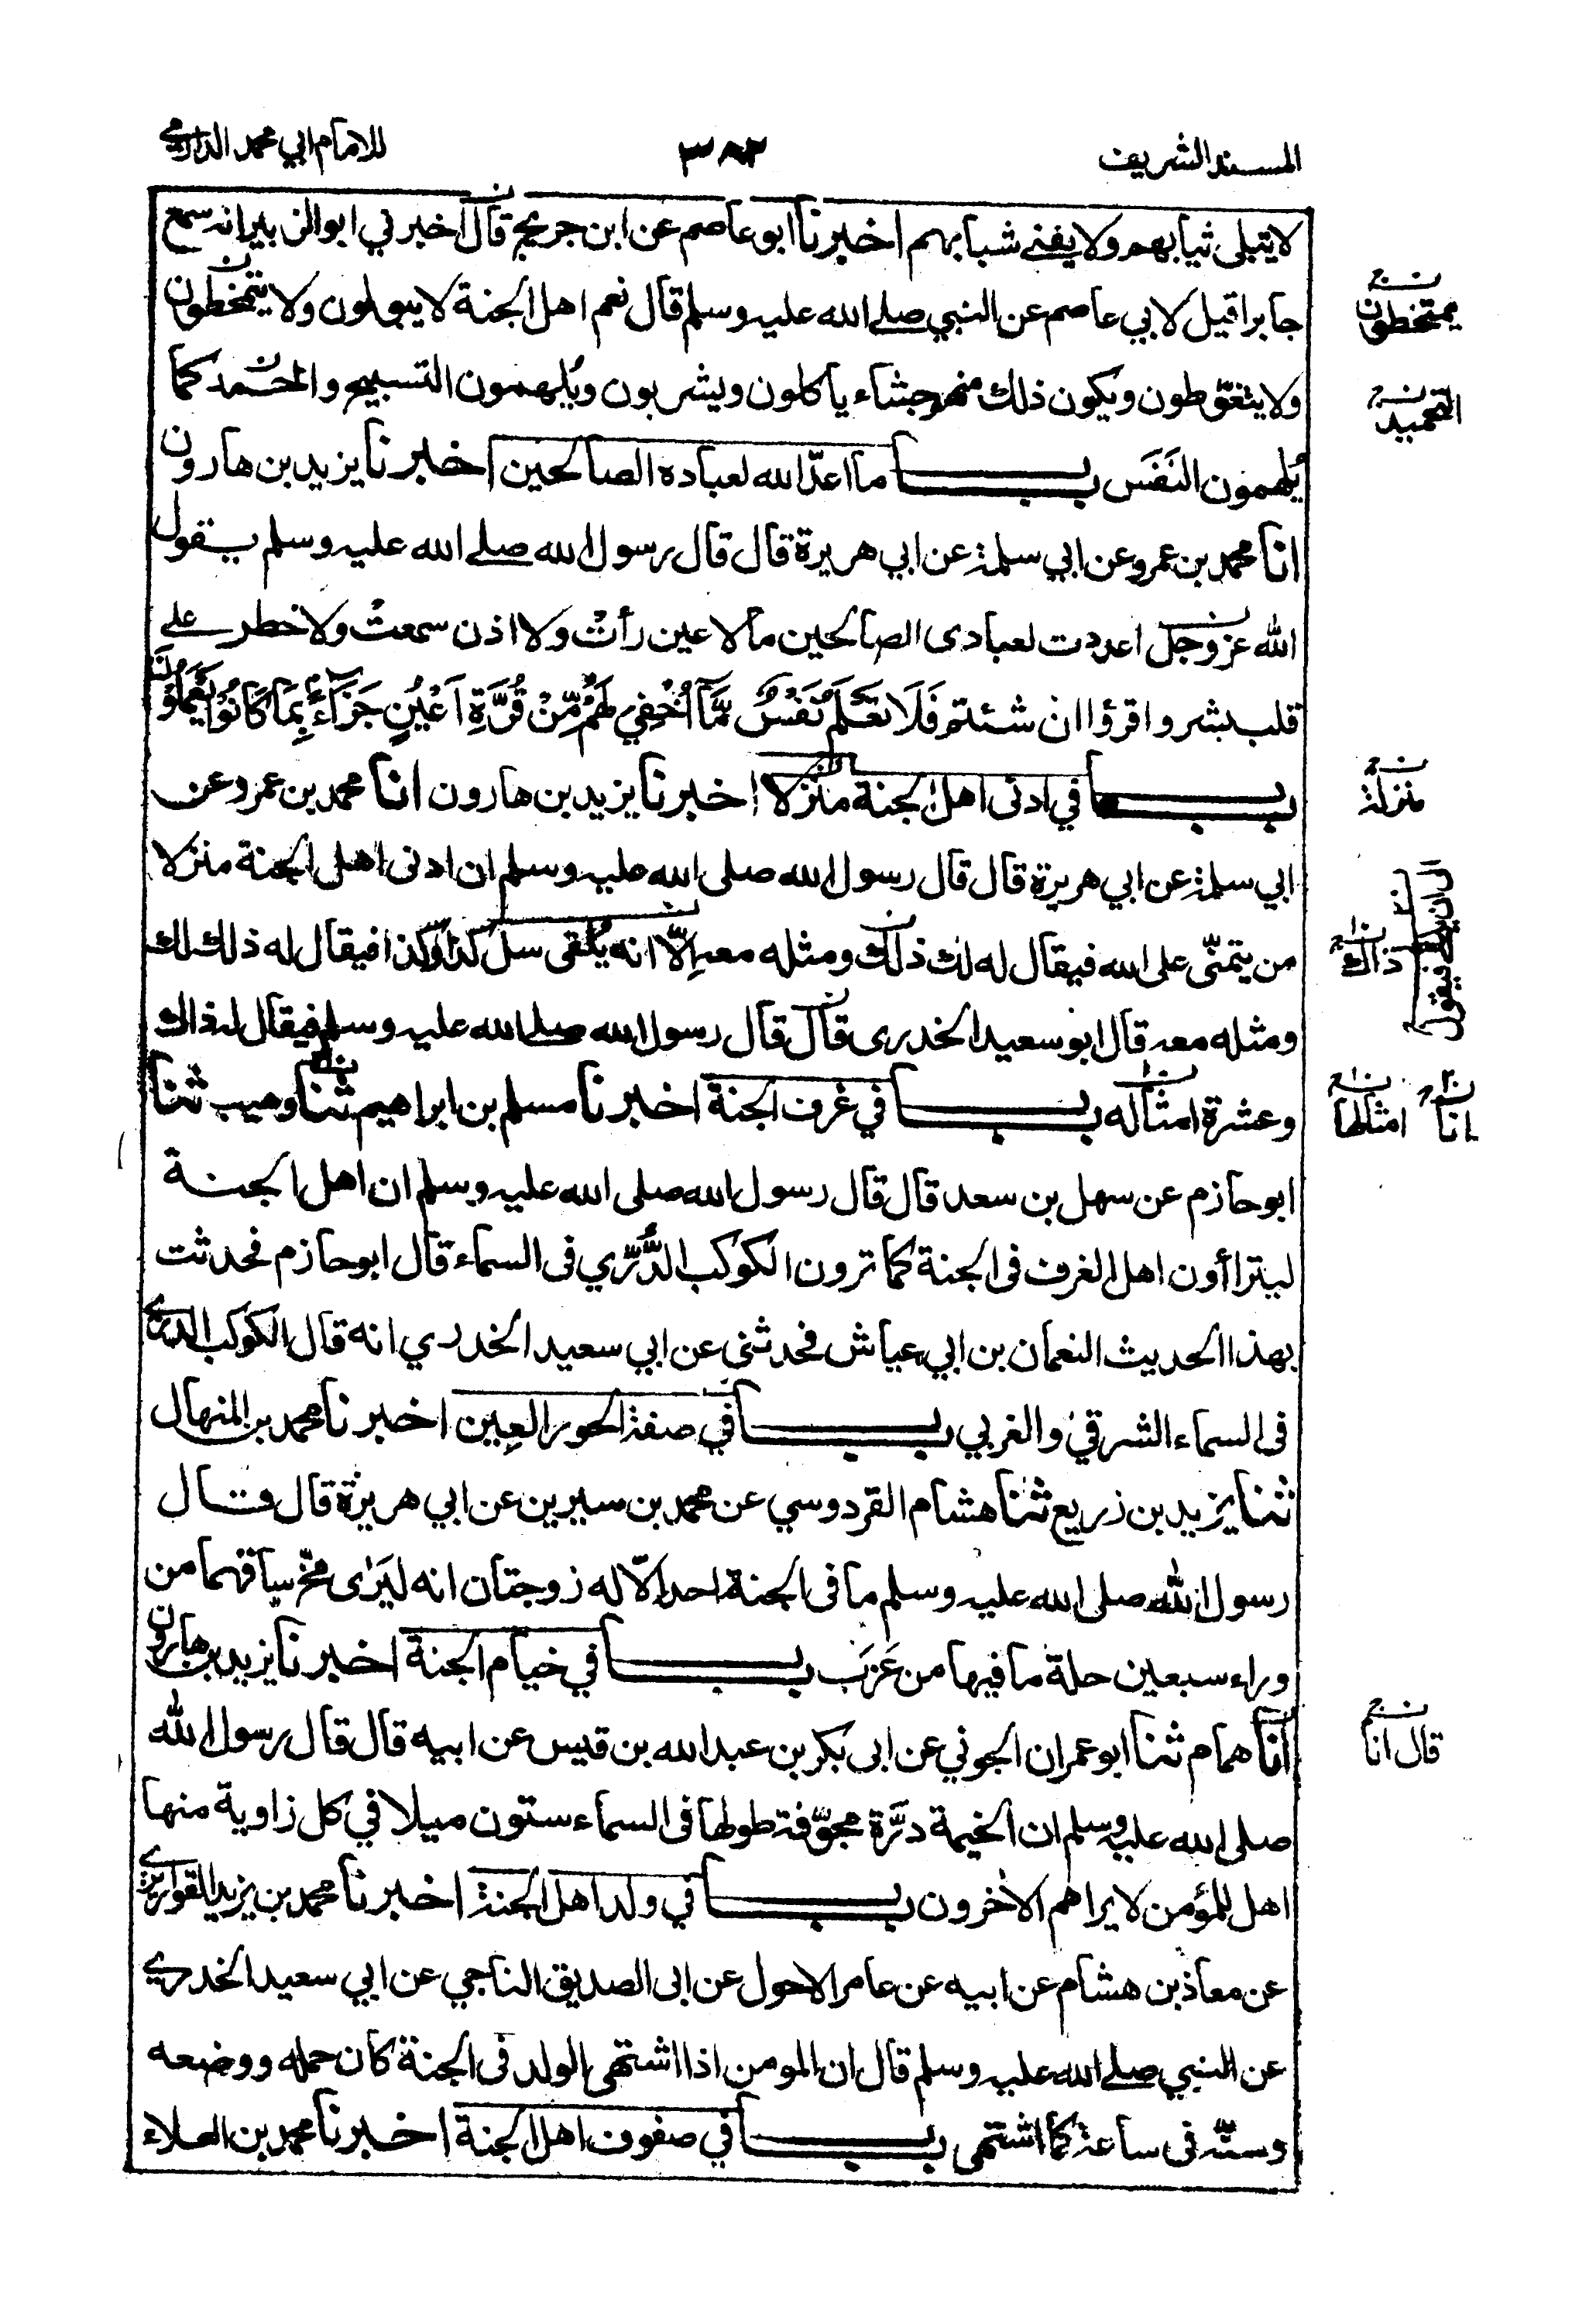 المسند الشريف
٣٨٢
للامام ابي محمد الدارمي
لا يتبلى ثيابهم ولا يفنى شبابهم اخبرنا ابو عاصم عن ابن جريج قال اخبرني ابو الزبير انه سمع
جابرا قيل لابي عاصم عن النبي صلى الله عليه وسلم قال نعم اهل الجنة لا يبولون ولا يتمخطون
ولا يتغوّطون ويكون ذلك منهم جشاء ياكلون ويشربون ويُلهمون التسبيح والحمد كما
يُلهمون النَفَسَ بـاب ما اعدّ الله لعباده الصالحين اخبرنا يزيد بن هارون
انا محمد بن عمرو عن ابي سلمة عن ابي هريرة قال قال رسول الله صلى الله عليه وسلم يقول
الله عز وجل اعددت لعبادى الصالحين مالا عين رأتْ ولا اذن سمعتْ ولا خطر على
قلب بشر واقرؤا ان شئتم فَلَا تَعْلَمُ نَفْسٌ مَّآ اُخْفِيَ لَهُمْ مِّنْ قُرَّةِ اَعْيُنٍ جَزَآءً بِمَا كَانُوْا يَعْمَلُوْنَ
بـاب في ادنى اهل الجنة منزلا اخبرنا يزيد بن هارون انا محمد بن عمرو عن
ابي سلمة عن ابي هريرة قال قال رسول الله صلى الله عليه وسلم ان ادنى اهل الجنة منزلا
من يتمنّى على الله فيقال له لك ذلك ومثله معه اِلّا انه يُلقى سل كذا وكذا فيقال له ذلك لك
ومثله معه قال ابو سعيد الخدرى قال قال رسول الله صلى الله عليه وسلم فيقال له ذاك
وعشرة امثاله بـاب في غرف الجنة اخبرنا مسلم بن ابراهيم ثنا وهيب ثنا
ابو حازم عن سهل بن سعد قال قال رسول الله صلى الله عليه وسلم ان اهل الجنة
ليتراأون اهل الغرف فى الجنة كما ترون الكوكب الدُّرّي فى السماء قال ابو حازم فحدثت
بهذا الحديث النعمان بن ابي عياش فحدثنى عن ابي سعيد الخدري انه قال الكوكب الدري
فى السماء الشرقي والغربي بـاب في صفة الحور العِين اخبرنا محمد بن المنهال
ثنا يزيد بن زريع ثنا هشام القردوسي عن محمد بن سيرين عن ابي هريرة قال قال
رسول الله صلى الله عليه وسلم ما فى الجنة احد اِلّا له زوجتان انه ليَرٰى مخّ ساقهما من
وراء سبعين حلة ما فيها من عَزَب بـاب في خيام الجنة اخبرنا يزيد بن هارون
انا همام ثنا ابو عمران الجوني عن ابى بكر بن عبد الله بن قيس عن ابيه قال قال رسول الله
صلى الله عليه وسلم ان الخيمة درّة مجوّفة طولها فى السماء ستون ميلا في كل زاوية منها
اهل للمؤمن لا يراهم الاٰخرون بـاب في ولد اهل الجنة اخبرنا محمد بن يزيد القواريري
عن معاذ بن هشام عن ابيه عن عامر الاحول عن ابى الصديق الناجي عن ابي سعيد الخدري
عن النبي صلى الله عليه وسلم قال ان المومن اذا اشتهى الولد فى الجنة كان حمله ووضعه
وسنّه فى ساعة كما اشتهى بـاب في صفوف اهل الجنة اخبرنا محمد بن العلاء
يمتخطون
التحميد
منزلة
ذاك
امثالها
انا
قال انا